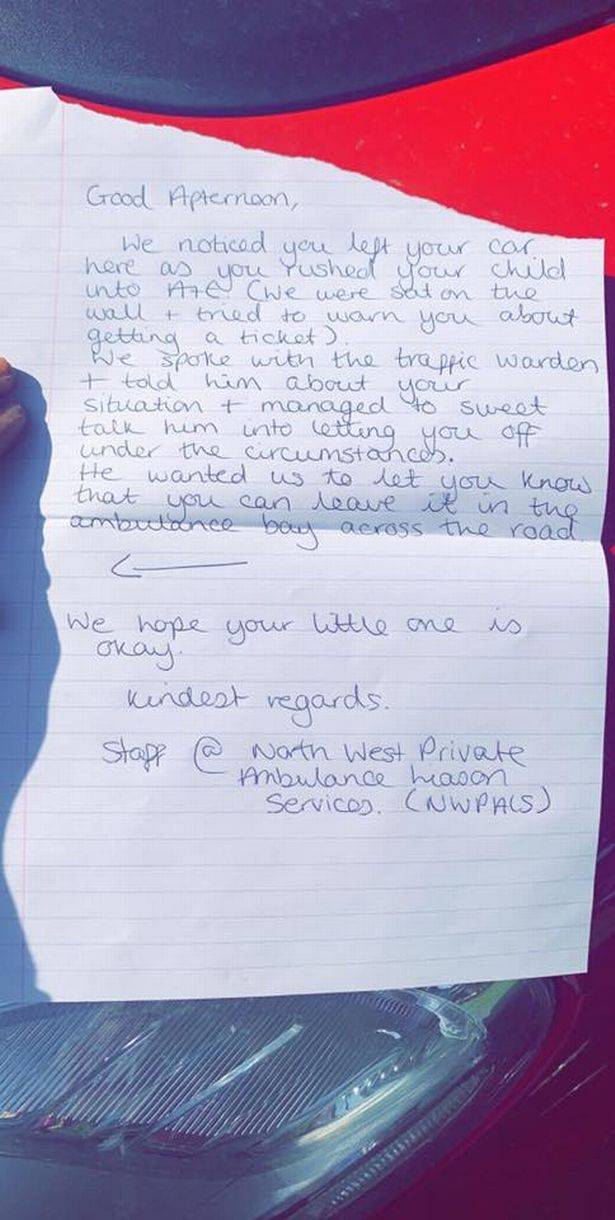 Good Afternoon,
We noticed you left your car
here as you rushed your child
into A+E. (We were sat on the
wall + tried to warn you about
getting a ticket)
We spoke with the traffic warden
+ told him about your
situation + managed to sweet
talk him into letting you off
under the circumstances.
He wanted us to let you know
that you can leave it in the
ambulance bay across the road
←
We hope your little one is
okay.
Kindest regards.
Staff @ North West Private
Ambulance Liason
Services. (NWPALS)